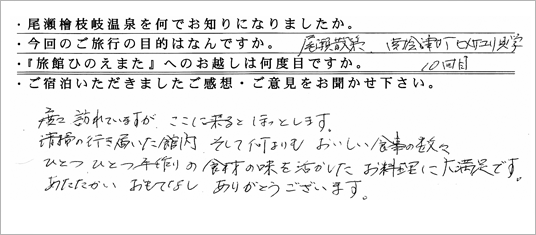 ・尾瀬檜枝岐温泉を何でお知りになりましたか。
・今回のご旅行の目的はなんですか。 尾瀬散策 南会津町ひめさゆり見学
・『旅館ひのえまた』へのお越しは何度目ですか。 10回目
・ご宿泊いただきましたご感想・ご意見をお聞かせ下さい。
度々訪れていますが、ここに来るとほっとします。
清掃の行き届いた館内 そして何よりも おいしい食事の数々
ひとつ ひとつ手作りの食材の味を活かした お料理に大満足です。
あたたかい おもてなし ありがとうございます。